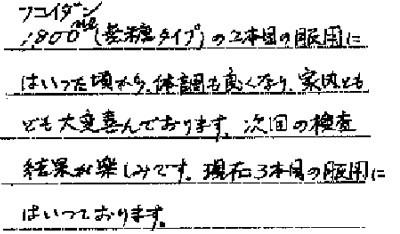 フコイダン
1800ml(蔗糖タイプ)の2本目の服用に
はいった頃から、体調も良くなり、家内とも
ども大変喜んでおります。次回の検査
結果が楽しみです。現在3本目の服用に
はいっております。